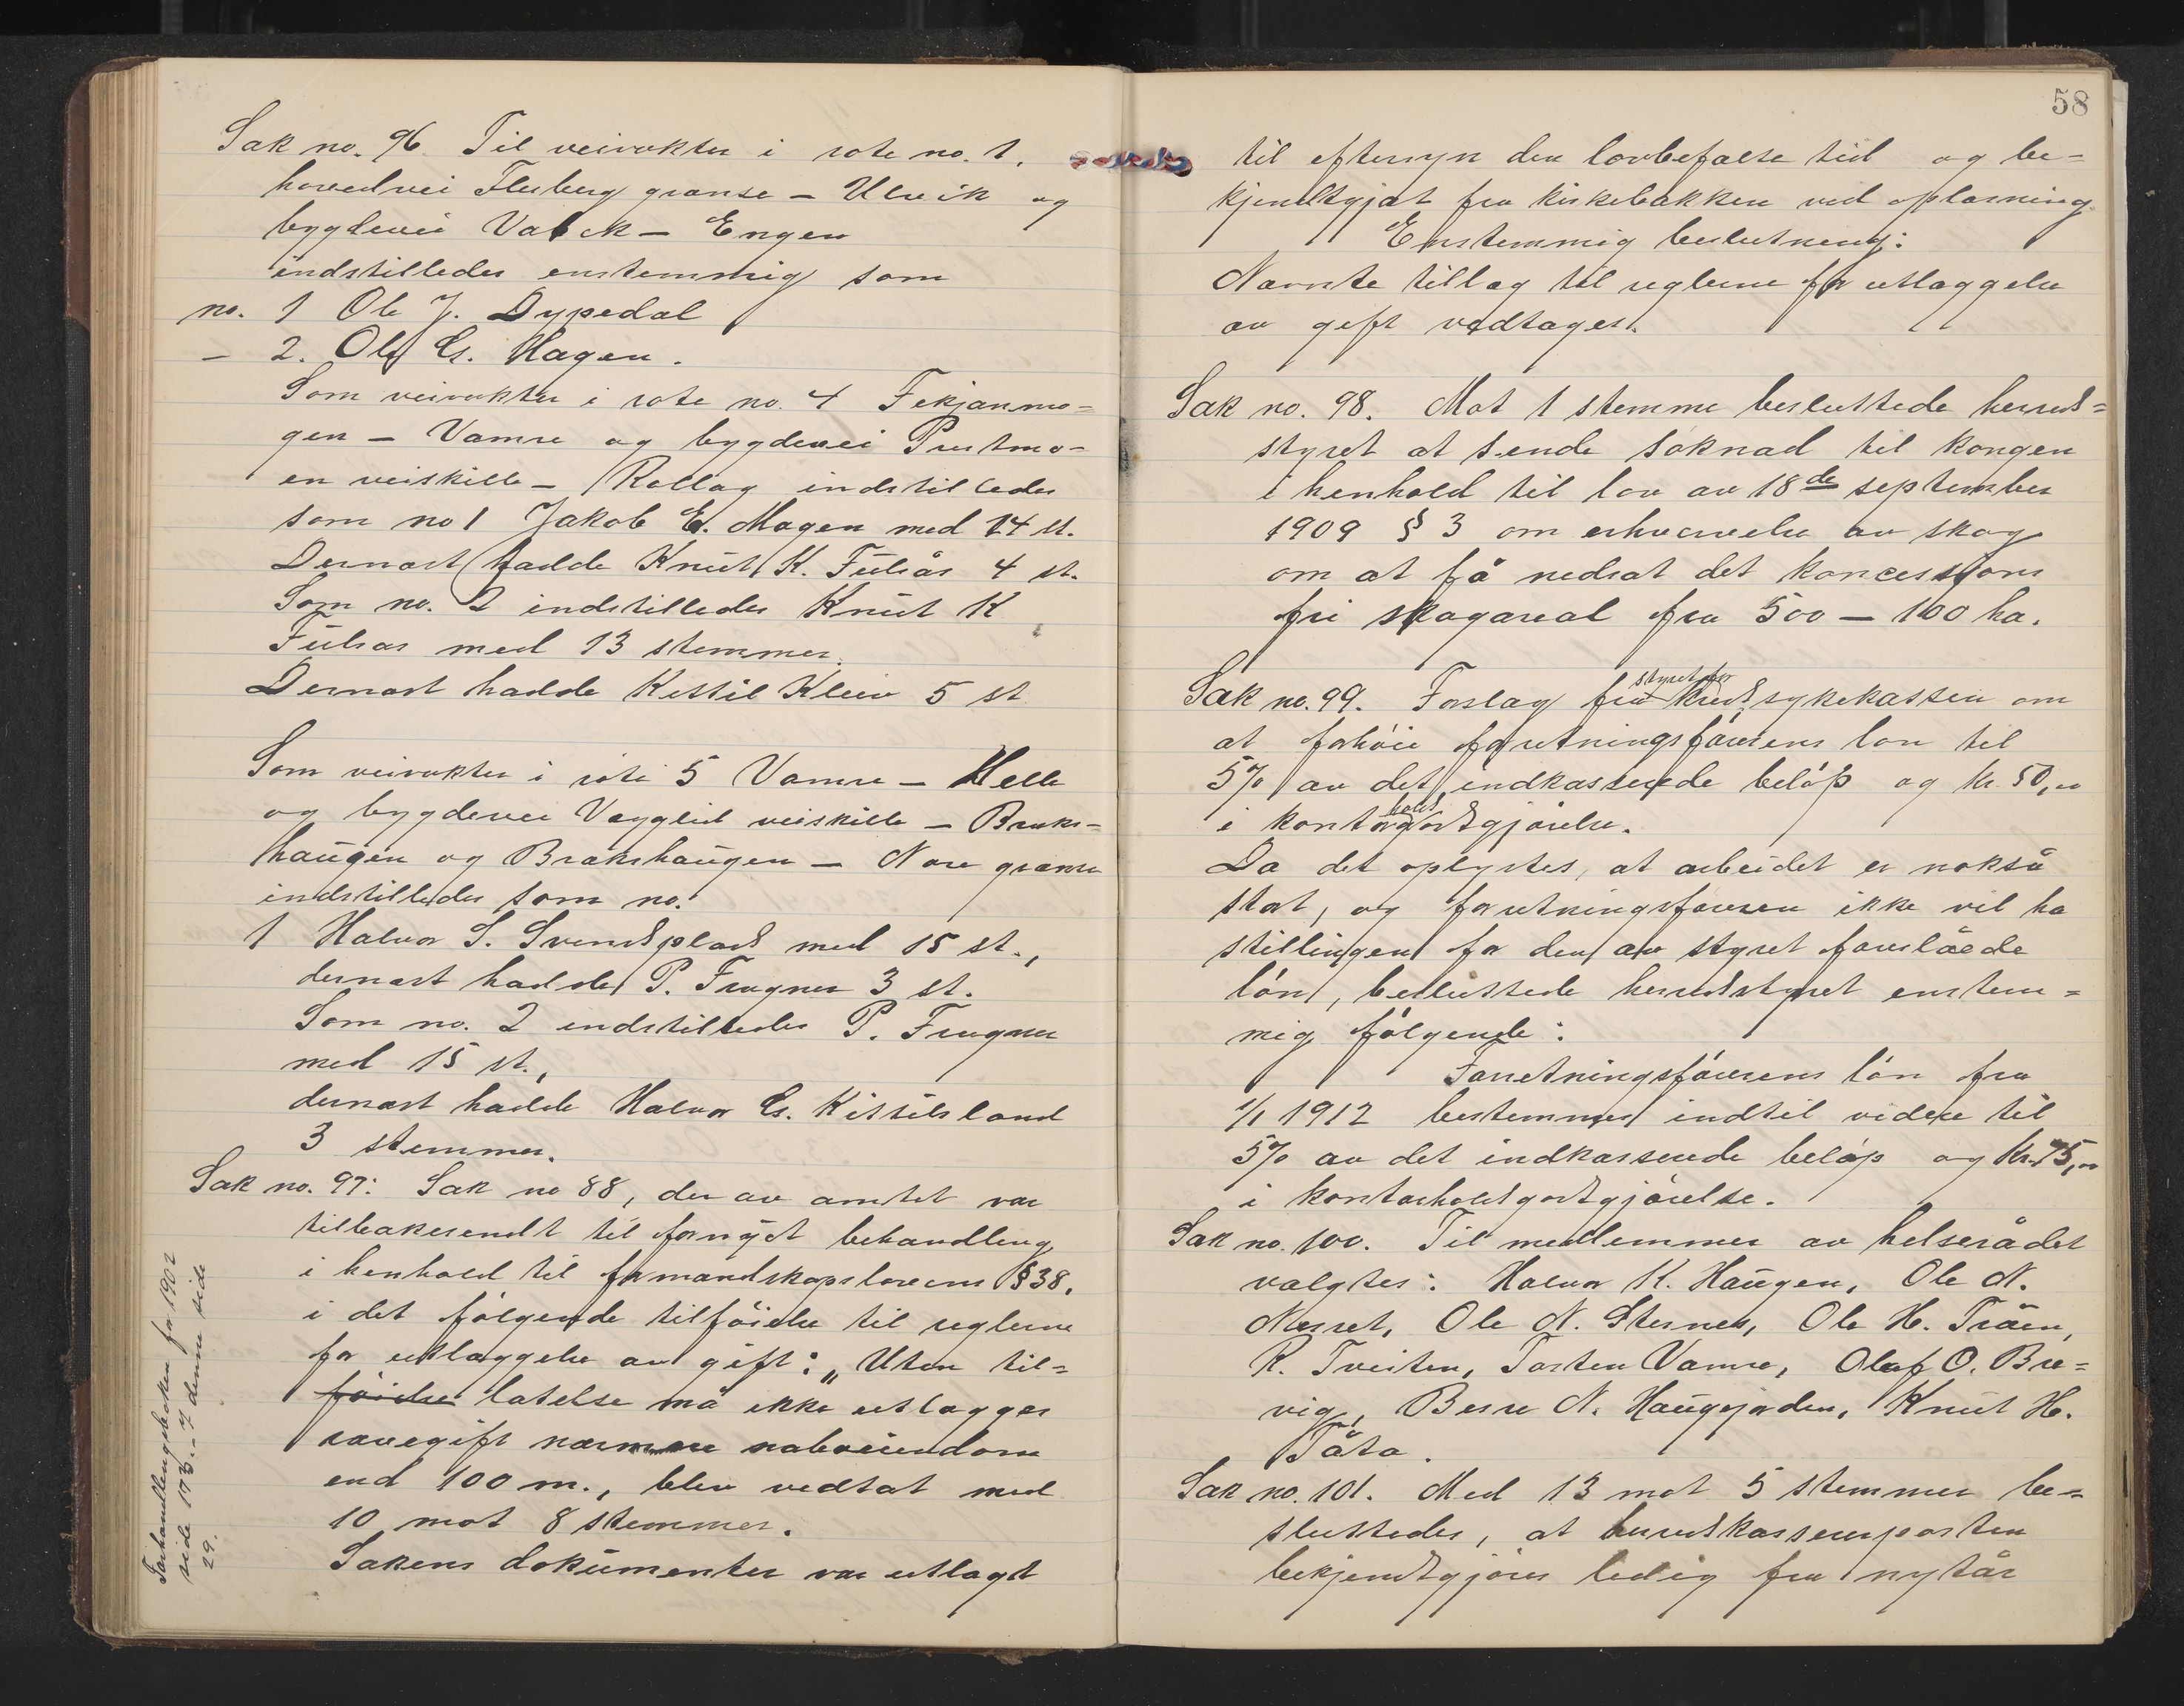 Sak no. 96. Til veivokter i rote no. 1.
hovedvei Flesberg grænse – Ulvik og
bygdevei Valck – Engen
indstilledes enstemmig som
no. 1 Ole J. Dypedal
– 2. Ole G. Hagen.
Som veivokter i rote no. 4 Fekjanmo=
gen – Vamre og bygdevei Prestmo-
en veiskille – Rollag indstilledes
som no 1 Jakob E. Mogen med 14 st.
Dernæst hadde Knut K. Fulsås 4 st.
Som no. 2 indstilledes Knut K
Fulsas med 13 stemmer.
Dernæst hadde Kittil Kleiv 5 st
Som veivokter i rote 5 Vamre – Helle
og bygdevei Væglid veiskille – Braks-
haugen og Brakshaugen – Nore grænse
indstilledes som no.
1 Halvor S. Svendsplads med 15 st.,
dernæst hadde P. Frugner 3 st.
Som no. 2 indstilledes P. Frugner
med 15 st.,
dernæst hadde Halvor G. Kittilsland
3 stemmer.
Sak no. 97: Sak no 88, der av amtet var
tilbakesendt til fornyet behandling
i henhold til formandskapslovens §38.
i det følgende tilføielse til reglerne
for utlæggelse av gift: „Uten til=
føielse latelse må ikke utlægges
rævegift nærmere naboeiendom
end 100 m., blev vedtat med
10 mot 8 stemmer.
Sakens dokumenter var utlagt
Forhandlingsboken for 1902
side 173. – 7 denne side
29.
58
til eftersyn den lovbefalte tid og be=
kjendtgjort fra kirkebakken ved oplæsning.
Enstemmig beslutning:
Nævnte tillæg til reglerne for utlæggelse
av gift vedtages.
Sak no. 98. Mot 1 stemme besluttede herreds=
styret at sende søknad til kongen
i henhold til lov av 18de september
1909 § 3 om erhvervelse av skog
om at få nedsat det koncessions
fri skogareal fra 500 – 100 ha.
Sak no. 99. Forslag fra styret for kredssykekassen om
at forhøie forretningsførerens løn til
5% av det indkasserede beløp og kr. 50,00
i kontorholdsgodtgjørelse.
Da det oplystes, at arbeidet er nokså
stort, og forretningsføreren ikke vil ha
stillingen for den av styret foreslåede
løn, besluttede herredsstyret enstem=
mig følgende:
Forretningsførerens løn fra
1/1 1912 bestemmes indtil videre til
5% av det indkasserede beløp og kr. 75,00
i kontorholdsgodtgjørelse.
Sak no. 100. Til medlemmer av helserådet
valgtes: Halvor K. Haugen, Ole N.
Mesret, Ole N. Sternes, Ole H. Tråen,
K. Tveiten, Torsten Vamre, Olaf O. Bre=
vig, Besse N. Haugejorden, Knut H.
Tåta.
Sak no. 101. Med 13 mot 5 stemmer be=
sluttedes, at herredskasserposten
bekjendtgjøres ledig fra nytår